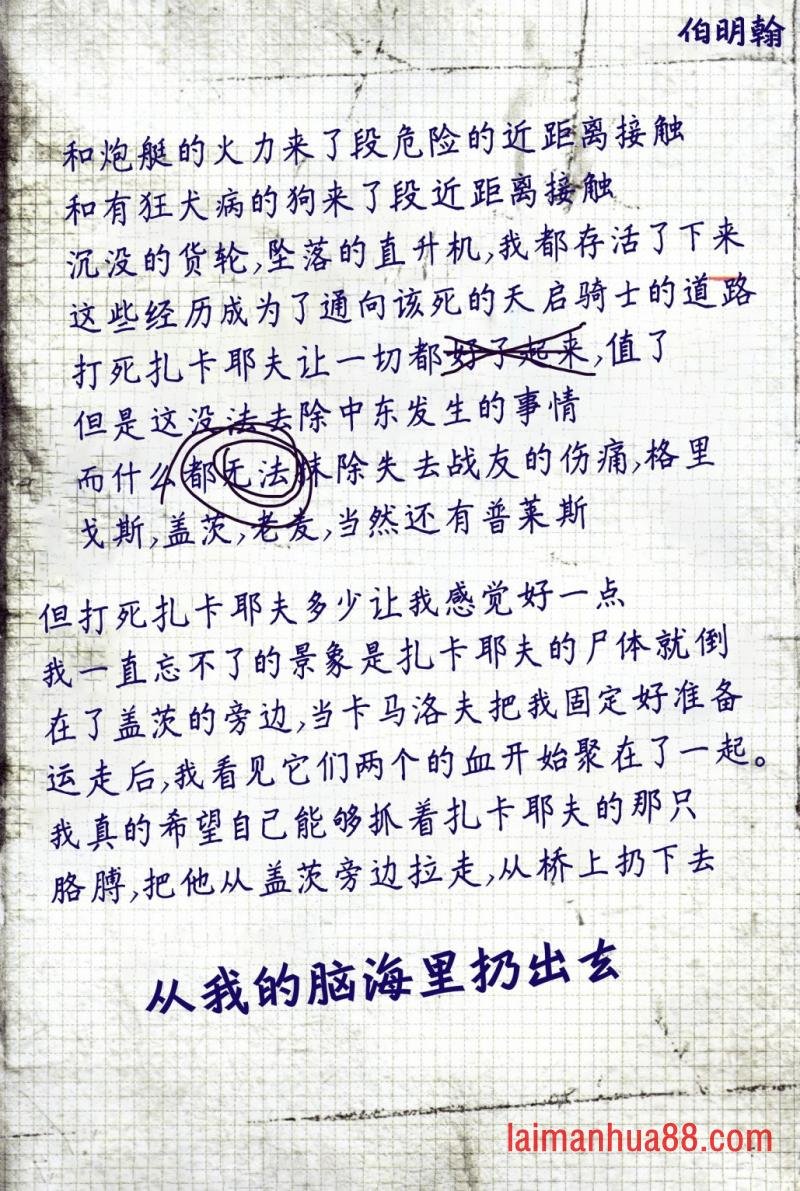 伯明翰
和炮艇的火力来了段危险的近距离接触
和有狂犬病的狗来了段近距离接触
沉没的货轮,坠落的直升机,我都存活了下来
这些经历成为了通向该死的天启骑士的道路
打死扎卡耶夫让一切都好了起来,值了
但是这没法去除中东发生的事情
而什么都无法抹除失去战友的伤痛,格里
戈斯,盖茨,老麦,当然还有普莱斯
但打死扎卡耶夫多少让我感觉好一点
我一直忘不了的景象是扎卡耶夫的尸体就倒
在了盖茨的旁边,当卡马洛夫把我固定好准备
运走后,我看见它们两个的血开始聚在了一起。
我真的希望自己能够抓着扎卡耶夫的那只
胳膊,把他从盖茨旁边拉走,从桥上扔下去
从我的脑海里扔出去
laimanhua88.com